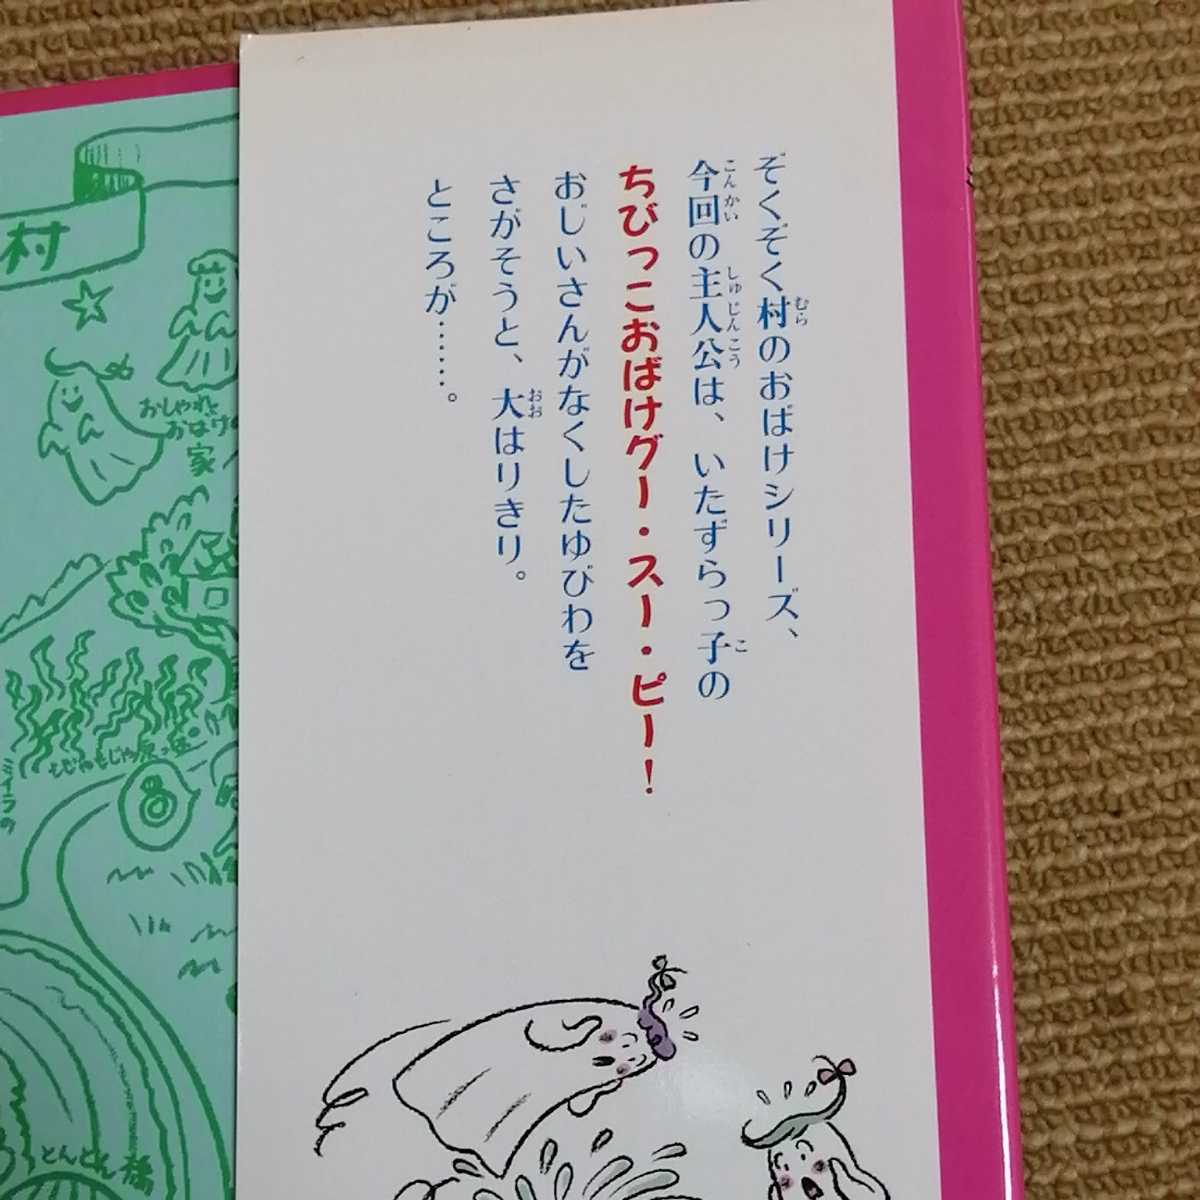 ぞくぞく村のおばけシリーズ、
今回の主人公は、いたずらっ子の
ちびっこおばけグー・スー・ピー！
おじいさんがなくしたゆびわを
さがそうと、大はりきり。
ところが……。
むら
こんかい
しゅじんこう
こ
おお
村
おしゃれな
おばけの
家
もじゃもじゃ原っぱ
ミイラの
とんとん橋